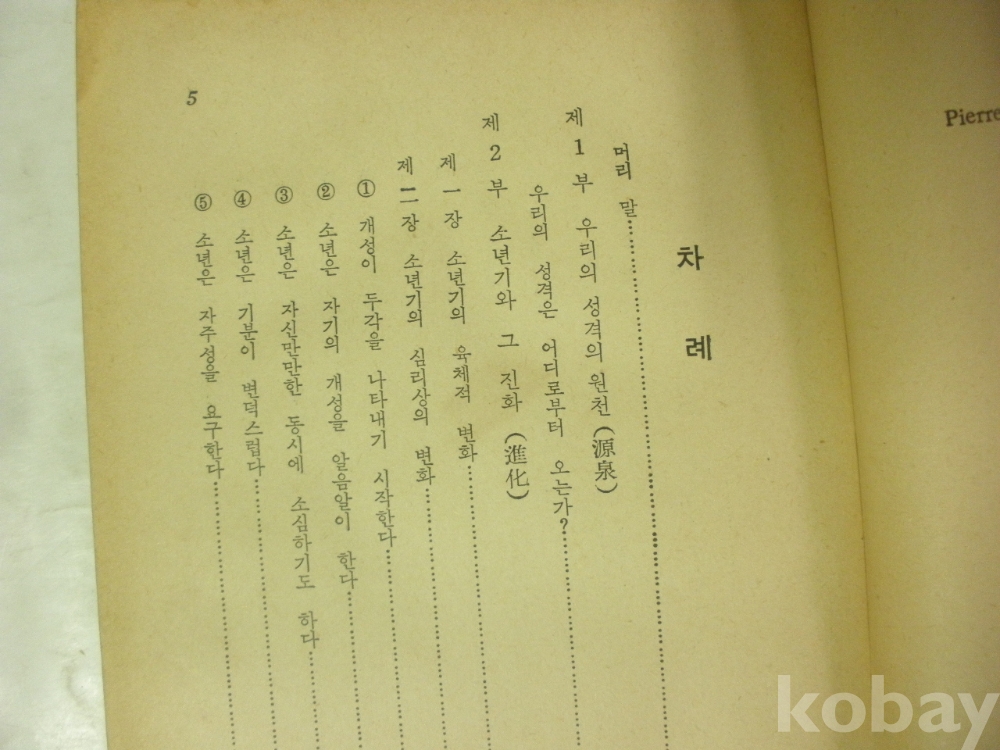 Pierre
차례
머리 말
제 1 부 우리의 성격의 원천(源泉)
우리의 성격은 어디로부터 오는가?
제 2 부 소년기와 그 진화 (進化)
제 一 장 소년기의 육체적 변화
제 二 장 소년기의 심리상의 변화
① 개성이 두각을 나타내기 시작한다
② 소년은 자기의 개성을 알음알이 한다
③ 소년은 자신만만한 동시에 소심하기도 하다
④ 소년은 기분이 변덕스럽다
⑤ 소년은 자주성을 요구한다
5
kobay